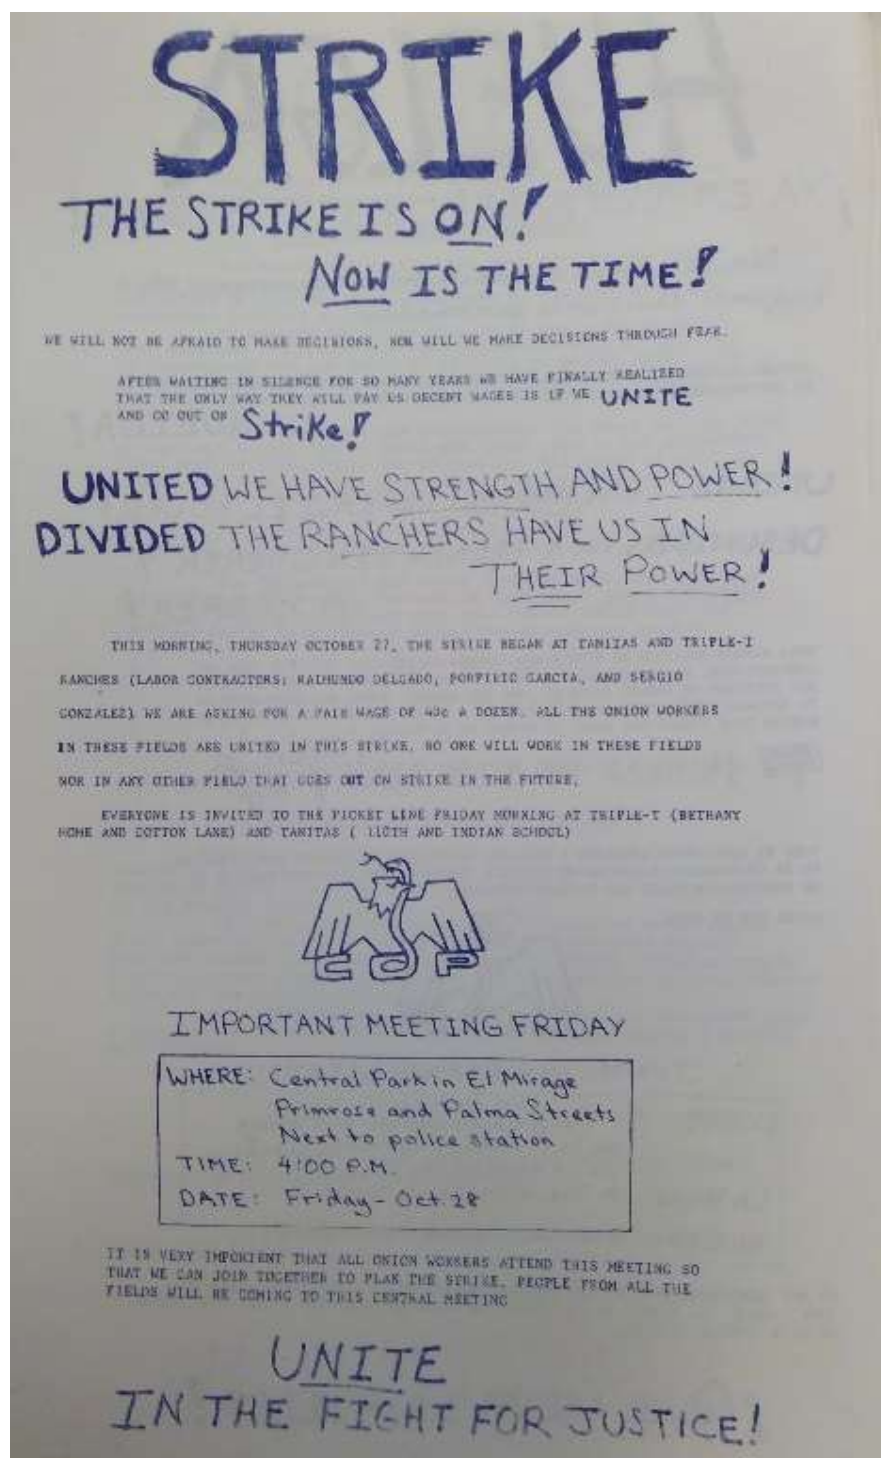 STRIKE
THE STRIKE IS ON!
NOW IS THE TIME!
WE WILL NOT BE AFRAID TO MAKE DECISIONS, NOR WILL WE MAKE DECISIONS THROUGH FEAR.
AFTER WAITING IN SILENCE FOR SO MANY YEARS WE HAVE FINALLY REALIZED
THAT THE ONLY WAY THEY WILL PAY US DECENT WAGES IS IF WE UNITE
AND GO OUT ON Strike!
UNITED WE HAVE STRENGTH AND POWER!
DIVIDED THE RANCHERS HAVE US IN
THEIR POWER!
THIS MORNING, THURSDAY OCTOBER 27, THE STRIKE BEGAN AT TANITAS AND TRIPLE-I
RANCHES (LABOR CONTRACTORS; RAIMUNDO DELGADO, PORFIRIO GARCIA, AND SERGIO
GONZALEZ) WE ARE ASKING FOR A FAIR WAGE OF A DOZEN. ALL THE ONION WORKERS
IN THESE FIELDS ARE UNITED IN THIS STRIKE. NO ONE WILL WORK IN THESE FIELDS
NOR IN ANY OTHER FIELD THAT GOES OUT ON STRIKE IN THE FUTURE.
EVERYONE IS INVITED TO THE PICKET LINE FRIDAY MORNING AT TRIPLE-T (BETHANY
HOME AND COTTON LANE) AND TANITAS ( AND INDIAN SCHOOL)
COP
IMPORTANT MEETING FRIDAY
WHERE: Central Park in El Mirage
Primrose and Palma Streets
Next to police station
TIME: 4:00 P.M.
DATE: Friday - Oct. 28
IT IS VERY IMPORTENT THAT ALL ONION WORKERS ATTEND THIS MEETING SO
THAT WE CAN JOIN TOGETHER TO PLAN THE STRIKE. PEOPLE FROM ALL THE
FIELDS WILL BE COMING TO THIS CENTRAL MEETING
UNITE
IN THE FIGHT FOR JUSTICE!